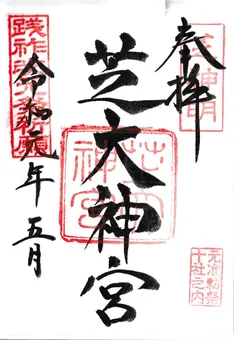 奉拝
芝大神宮
令和元年五月
芝神明
芝大神宮
元准勅祭
十社之内